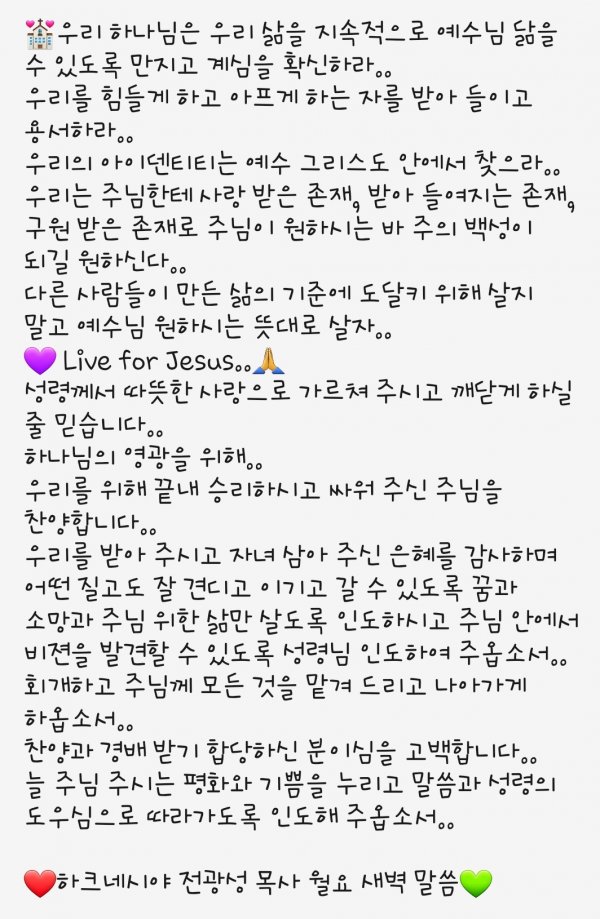 💒우리 하나님은 우리 삶을 지속적으로 예수님 닮을
수 있도록 만지고 계심을 확신하라。。
우리를 힘들게 하고 아프게 하는 자를 받아 들이고
용서하라。。
우리의 아이덴티티는 예수 그리스도 안에서 찾으라。。
우리는 주님한테 사랑 받은 존재, 받아 들여지는 존재,
구원 받은 존재로 주님이 원하시는 바 주의 백성이
되길 원하신다。。
다른 사람들이 만든 삶의 기준에 도달키 위해 살지
말고 예수님 원하시는 뜻대로 살자。。
💜 Live for Jesus。。🙏
성령께서 따뜻한 사랑으로 가르쳐 주시고 깨닫게 하실
줄 믿습니다。。
하나님의 영광을 위해。。
우리를 위해 끝내 승리하시고 싸워 주신 주님을
찬양합니다。。
우리를 받아 주시고 자녀 삼아 주신 은혜를 감사하며
어떤 질고도 잘 견디고 이기고 갈 수 있도록 꿈과
소망과 주님 위한 삶만 살도록 인도하시고 주님 안에서
비젼을 발견할 수 있도록 성령님 인도하여 주옵소서。。
회개하고 주님께 모든 것을 맡겨 드리고 나아가게
하옵소서。。
찬양과 경배 받기 합당하신 분이심을 고백합니다。。
늘 주님 주시는 평화와 기쁨을 누리고 말씀과 성령의
도우심으로 따라가도록 인도해 주옵소서。。
❤️하크네시야 전광성 목사 월요 새벽 말씀💚